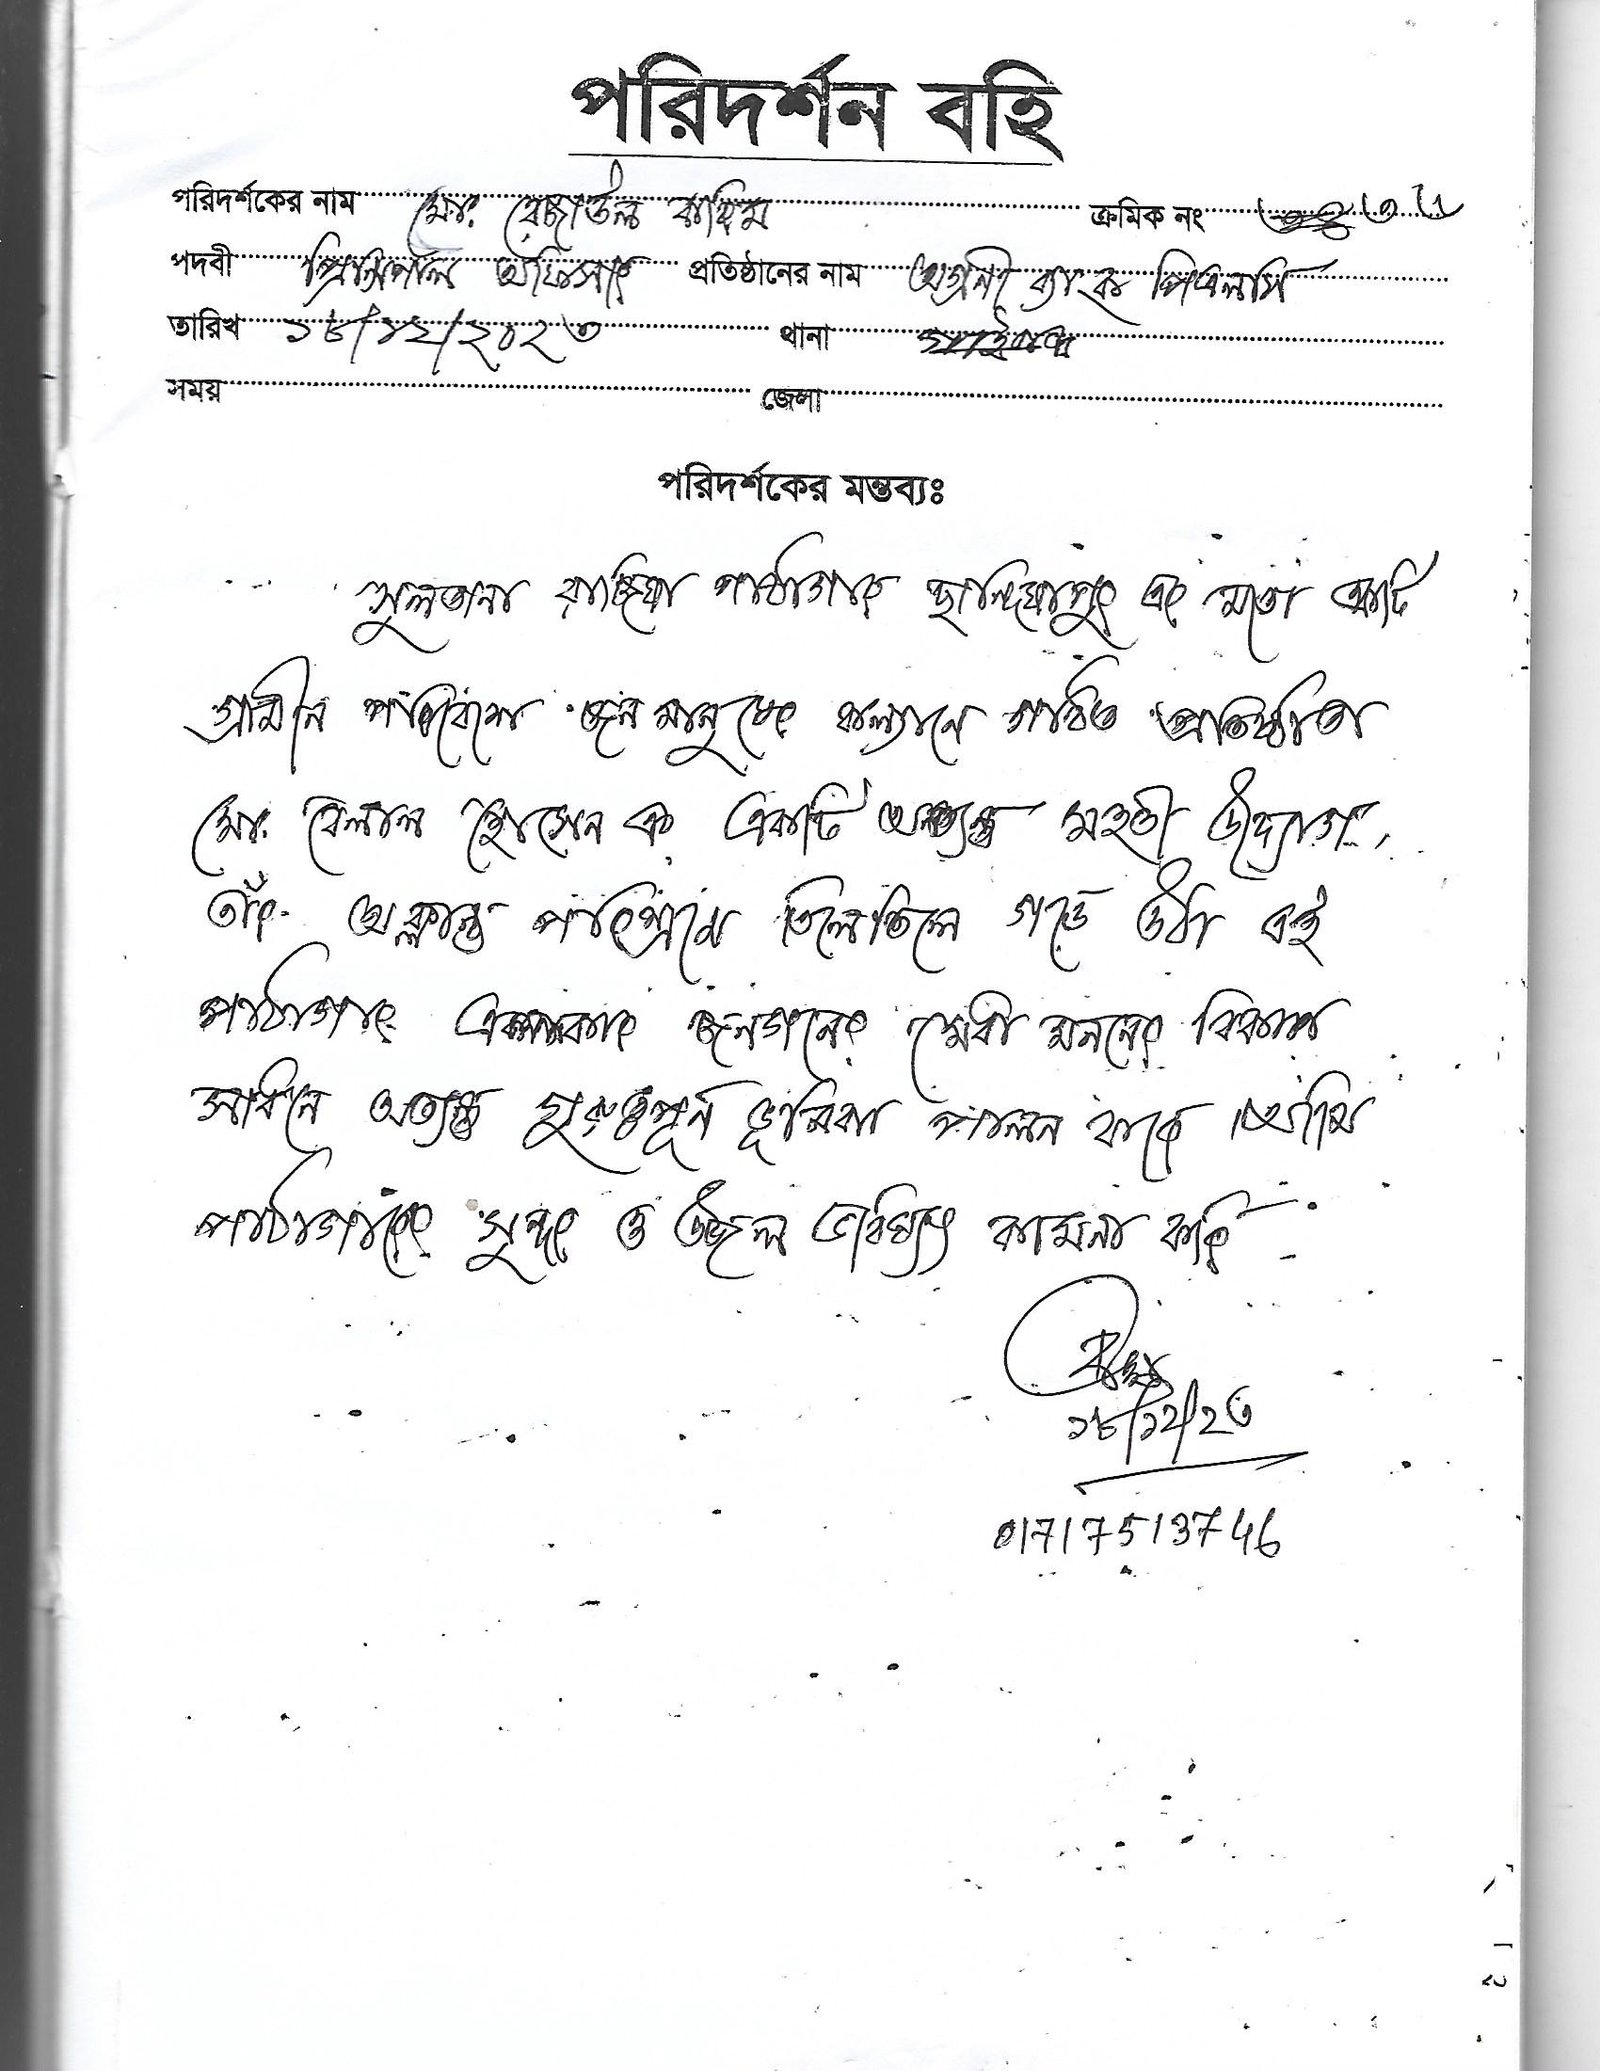 পরিদর্শন বহি
পরিদর্শকের নাম মো: রেজাউল করিম ক্রমিক নং ৩৬
পদবী প্রিন্সিপাল অফিসার প্রতিষ্ঠানের নাম অগ্রনী ব্যাংক পিএলসি
তারিখ ১৮/১২/২০২৩ থানা
সময় জেলা
পরিদর্শকের মন্তব্যঃ
সুলতানা রাজিয়া পাঠাগার ছান্দিয়াপুর এর মতো একটি
গ্রামীন পরিবেশে জন মানুষের কল্যানে গঠিত প্রতিষ্ঠাতা
মো: বেলাল হোসেন এর একটি অত্যন্ত মহতী উদ্যোগ,
তাঁর অক্লান্ত পরিশ্রমে তিলেতিলে গড়ে উঠা এই
পাঠাগার এলাকার জনগনের মেধা মননের বিকাশ
সাধনে অত্যন্ত গুরুত্বপূর্ন ভূমিকা পালন করবে। আমি
পাঠাগারের সুন্দর ও উজ্জল ভবিষ্যৎ কামনা করি
১৮/১২/২৩
01717513746